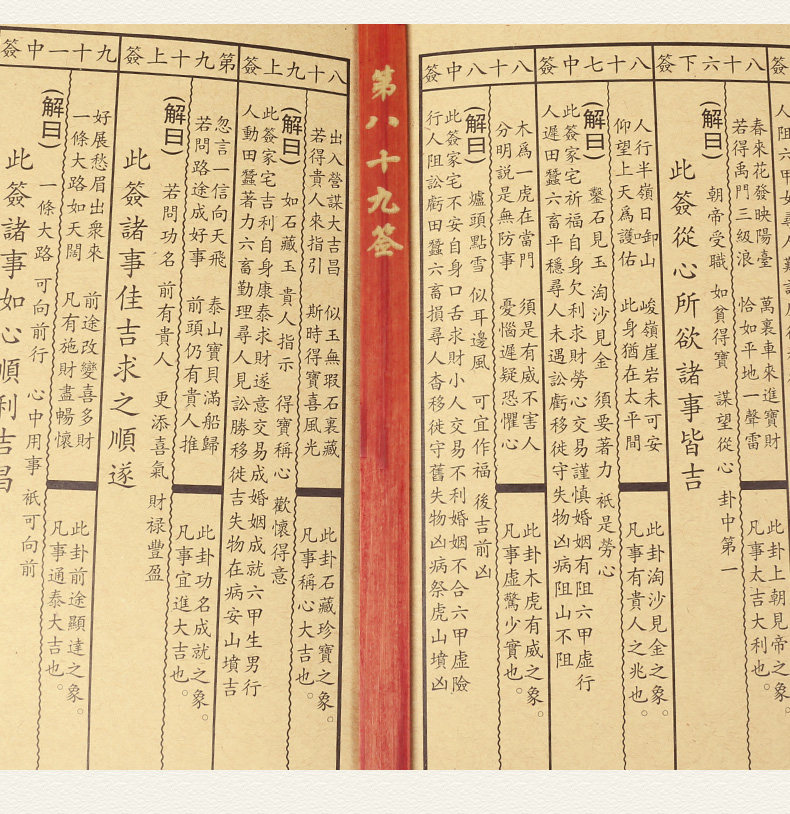 第八十九簽
簽
八十六下簽
春來花發映陽臺　萬裏車來進寶財
若得禹門三級浪　恰如平地一聲雷
此卦上朝見帝之象。
凡事太吉大利也。
(解曰)
朝帝受職　如貧得寶　謀望從心　卦中第一
此簽從心所欲諸事皆吉
八十七中簽
人行半嶺日卸山　峻嶺崖岩未可安
仰望上天爲護佑　此身猶在太平間
此卦淘沙見金之象。
凡事有貴人之兆也。
(解曰)
鑿石見玉　淘沙見金　須要著力　衹是勞心
此簽家宅祈福自身欠利求財勞心交易謹慎婚姻有阻六甲虛行
人遲田蠶六畜平穩尋人未遇訟虧移徙守失物凶病阻山不阻
八十八中簽
木爲一虎在當門　須是有威不害人
分明說是無防事　憂惱遲疑恐懼心
此卦木虎有威之象。
凡事虛驚少實也。
(解曰)
爐頭點雪　似耳邊風　可宜作福　後吉前凶
此簽家宅不安自身口舌求財小人交易不利婚姻不合六甲虛險
行人阻訟虧田蠶六畜損尋人杳移徙守舊失物凶病祭虎山墳凶
八十九上簽
出入營謀大吉昌　似玉無瑕石裏藏
若得貴人來指引　斯時得寶喜風光
此卦石藏珍寶之象。
凡事稱心大吉也。
(解曰)
如石藏玉　貴人指示　得寶稱心　歡懷得意
此簽家宅吉利自身康泰求財遂意交易成婚姻成就六甲生男行
人動田蠶著力六畜勤理尋人見訟勝移徙吉失物在病安山墳吉
第九十上簽
忽言一信向天飛　泰山寶貝滿船歸
若問路途成好事　前頭仍有貴人推
此卦功名成就之象。
凡事宜進大吉也。
(解曰)
若問功名　前有貴人　更添喜氣　財祿豐盈
此簽諸事佳吉求之順遂
九十一中簽
好展愁眉出衆來　前途改變喜多財
一條大路如天闊　凡有施財盡暢懷
此卦前途顯達之象。
凡事通泰大吉也。
(解曰)
一條大路　可向前行　心中用事　衹可向前
此簽諸事如心順利吉昌